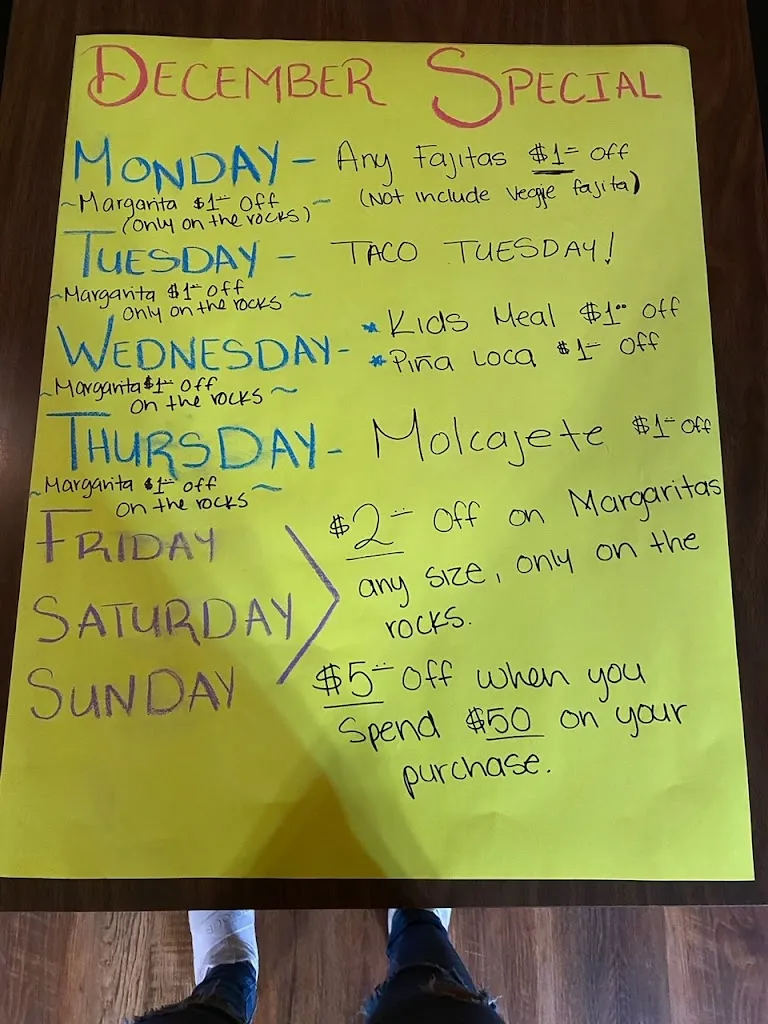 DECEMBER SPECIAL
MONDAY - Any Fajitas $1= off
~Margarita $1= off (Not include veggie fajita)
(only on the rocks) ~
TUESDAY - TACO TUESDAY!
~Margarita $1= off
only on the rocks ~
WEDNESDAY- * Kids Meal $1°° off
* Piña Loca $1= off
~Margarita $1= off
on the rocks ~
THURSDAY- Molcajete $1= off
~Margarita $1= off
on the rocks ~
FRIDAY
SATURDAY
SUNDAY
$2= off on Margaritas
any size, only on the
rocks.
$5= off when you
spend $50 on your
purchase.